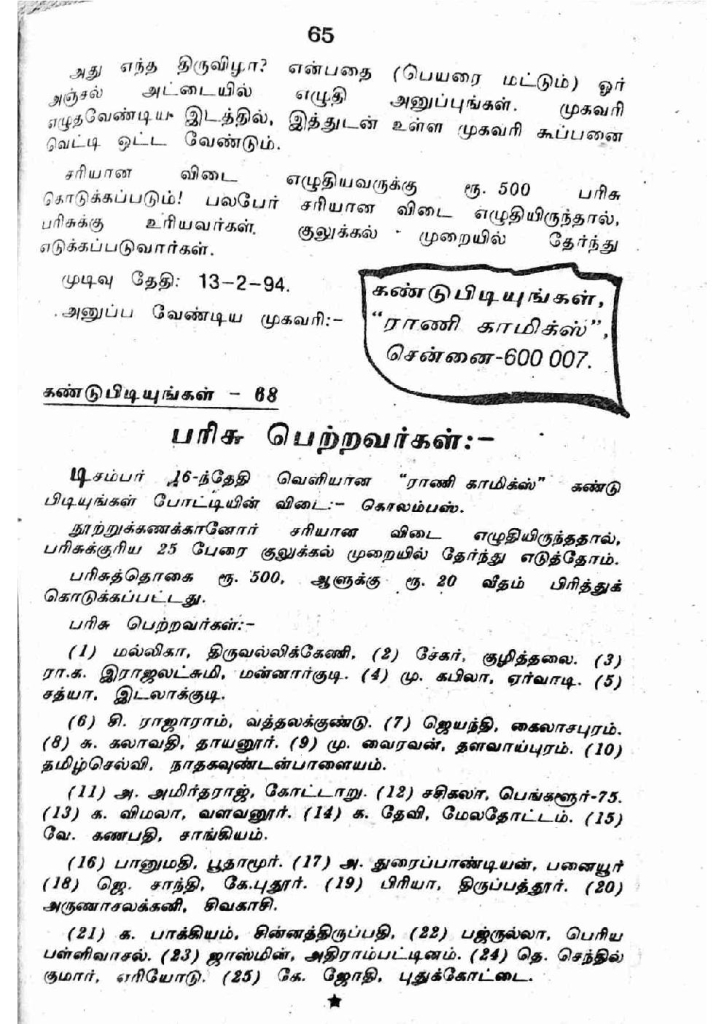 65
அது எந்த திருவிழா? என்பதை (பெயரை மட்டும்) ஓர்
அஞ்சல் அட்டையில் எழுதி அனுப்புங்கள். முகவரி
எழுதவேண்டிய இடத்தில், இத்துடன் உள்ள முகவரி கூப்பனை
வெட்டி ஒட்ட வேண்டும்.
சரியான விடை எழுதியவருக்கு ரூ. 500 பரிசு
கொடுக்கப்படும்! பலபேர் சரியான விடை எழுதியிருந்தால்,
பரிசுக்கு உரியவர்கள். குலுக்கல் முறையில் தேர்ந்து
எடுக்கப்படுவார்கள்.
முடிவு தேதி: 13-2-94.
அனுப்ப வேண்டிய முகவரி:-
கண்டுபிடியுங்கள்,
“ராணி காமிக்ஸ்”,
சென்னை-600 007.
கண்டுபிடியுங்கள் - 68
பரிசு பெற்றவர்கள்:-
டிசம்பர் 16-ந்தேதி வெளியான “ராணி காமிக்ஸ்” கண்டு
பிடியுங்கள் போட்டியின் விடை:- கொலம்பஸ்.
நூற்றுக்கணக்கானோர் சரியான விடை எழுதியிருந்ததால்,
பரிசுக்குரிய 25 பேரை குலுக்கல் முறையில் தேர்ந்து எடுத்தோம்.
பரிசுத்தொகை ரூ. 500, ஆளுக்கு ரூ. 20 வீதம் பிரித்துக்
கொடுக்கப்பட்டது.
பரிசு பெற்றவர்கள்:-
(1) மல்லிகா, திருவல்லிக்கேணி, (2) சேகர், குழித்தலை. (3)
ரா.க. இராஜலட்சுமி, மன்னார்குடி. (4) மு. கபிலா, ஏர்வாடி. (5)
சத்யா, இடலாக்குடி.
(6) சி. ராஜாராம், வத்தலக்குண்டு. (7) ஜெயந்தி, கைலாசபுரம்.
(8) சு. கலாவதி, தாயனூர். (9) மு. வைரவன், தளவாய்புரம். (10)
தமிழ்செல்வி, நாதகவுண்டன்பாளையம்.
(11) அ. அமிர்தராஜ், கோட்டாறு. (12) சசிகலா, பெங்களூர்-75.
(13) க. விமலா, வளவனூர். (14) க. தேவி, மேலதோட்டம். (15)
வே. கணபதி, சாங்கியம்.
(16) பானுமதி, பூதாமூர். (17) அ. துரைப்பாண்டியன், பனையூர்
(18) ஜெ. சாந்தி, கே.புதூர். (19) பிரியா, திருப்பத்தூர். (20)
அருணாசலக்கனி, சிவகாசி.
(21) க. பாக்கியம், சின்னத்திருப்பதி, (22) பஜ்ருல்லா, பெரிய
பள்ளிவாசல். (23) ஜாஸ்மின், அதிராம்பட்டினம். (24) தெ. செந்தில்
குமார், எரியோடு. (25) கே. ஜோதி, புதுக்கோட்டை.